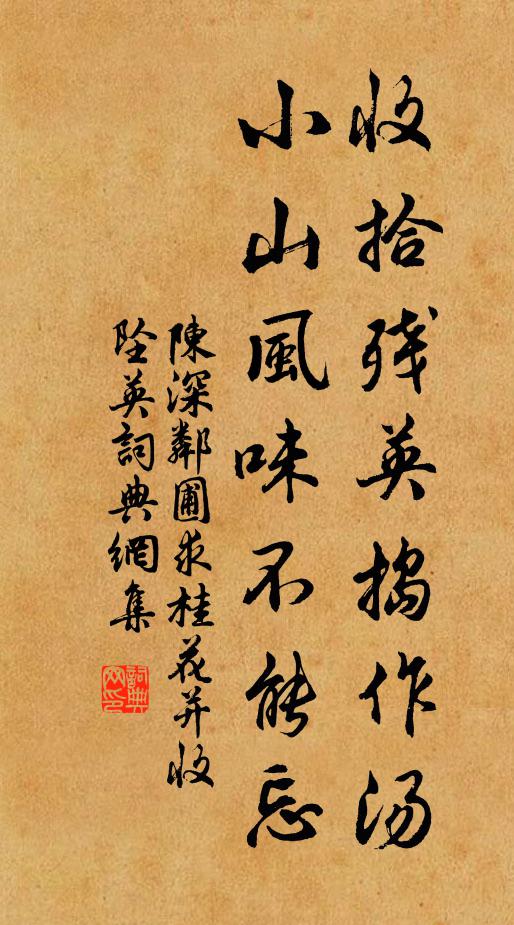 收拾残英搗作湯
小山風味不能忘
陳深鄰圃求桂花并收
墜英詞典網集
詞典
网印